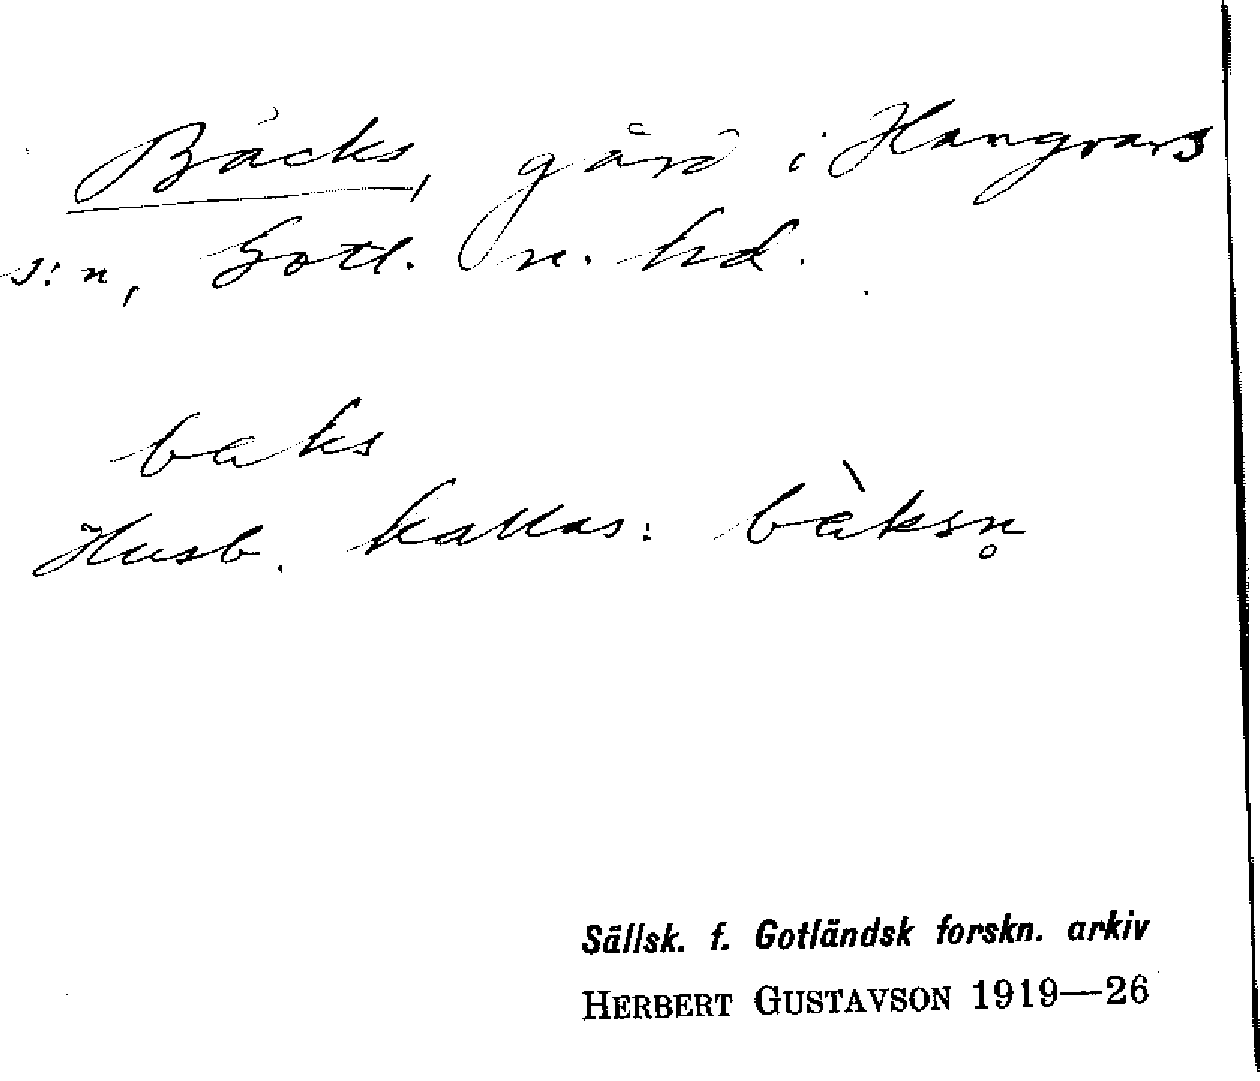 Bäcks, gård i Hangvars
s:n, Gotl. n. hd.
baks
Husb. kallas: bàksn̥
Sällsk. f. Gotländsk forskn. arkiv
HERBERT GUSTAVSON 1919—26